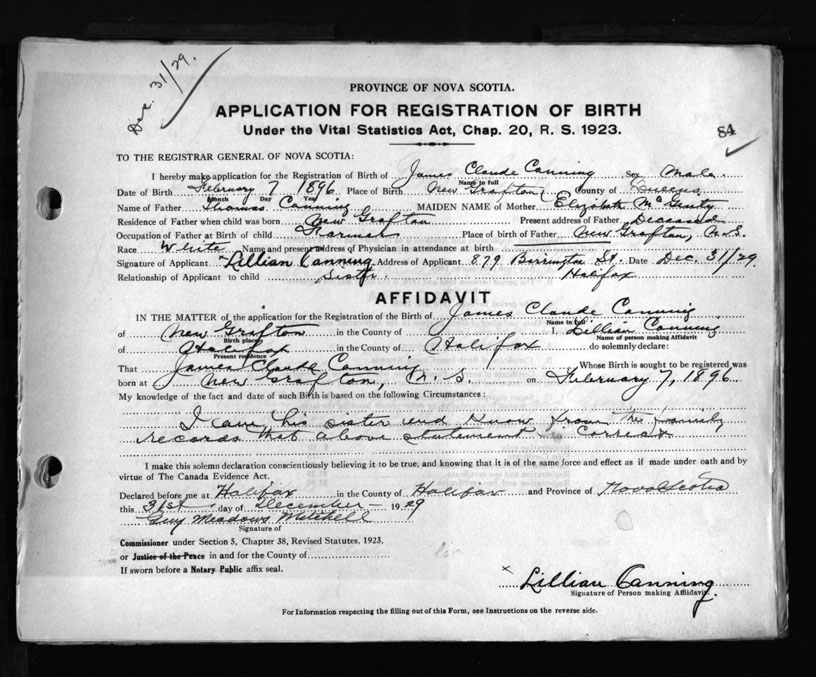 Dec. 31/29.
PROVINCE OF NOVA SCOTIA.
APPLICATION FOR REGISTRATION OF BIRTH
84
Under the Vital Statistics Act, Chap. 20, R. S. 1923.
TO THE REGISTRAR GENERAL OF NOVA SCOTIA:
I hereby make application for the Registration of Birth of James Claude Canning Sex Male
Name in full
Date of Birth February 7 1896 Place of Birth New Grafton County of Queens
Month Day Year
Name of Father Thomas Canning MAIDEN NAME of Mother Elizabeth
Residence of Father when child was born New Grafton Present address of Father Deceased
Occupation of Father at Birth of child Farmer Place of birth of Father New Grafton, N.S.
Race White Name and present address of Physician in attendance at birth
Signature of Applicant x Lillian Canning Address of Applicant 879 Barrington St. Date Dec. 31/29
Relationship of Applicant to child Sister Halifax
AFFIDAVIT
IN THE MATTER of the application for the Registration of the Birth of James Claude Canning
Name in full
of New Grafton in the County of I, Lillian Canning
Birth place Name of person making Affidavit
of Halifax in the County of Halifax do solemnly declare:
Present residence
That James Claude Canning Whose Birth is sought to be registered was
born at New Grafton, N.S. on February 7, 1896
My knowledge of the fact and date of such Birth is based on the following Circumstances:
I am his sister and know from the family
records that above statement is correct
I make this solemn declaration conscientiously believing it to be true, and knowing that it is of the same force and effect as if made under oath and by
virtue of The Canada Evidence Act.
Declared before me at Halifax in the County of Halifax and Province of Nova Scotia
this 31st day of December 1929
Guy Meadows Mitchell
Signature of
Commissioner under Section 5, Chapter 38, Revised Statutes, 1923.
or Justice of the Peace in and for the County of
If sworn before a Notary Public affix seal.
x Lillian Canning
Signature of Person making Affidavit.
For Information respecting the filling out of this Form, see Instructions on the reverse side.